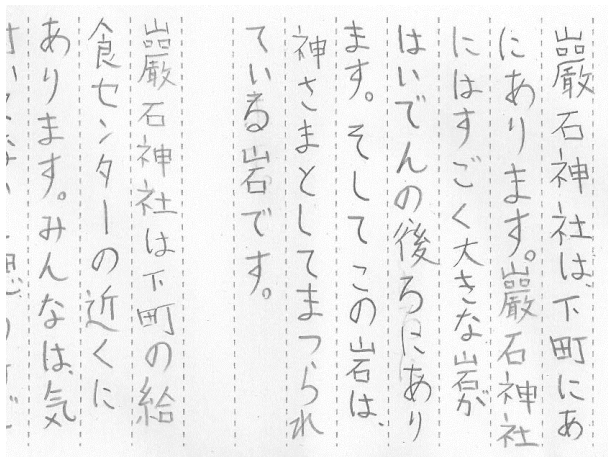 巖石神社は、下町にあ
にあります。巖石神社
にはすごく大きな岩が
はいでんの後ろにあり
ます。そしてこの岩は、
神さまとしてまつられ
ている岩です。
巖石神社は下町の給
食センターの近くに
あります。みんなは、気